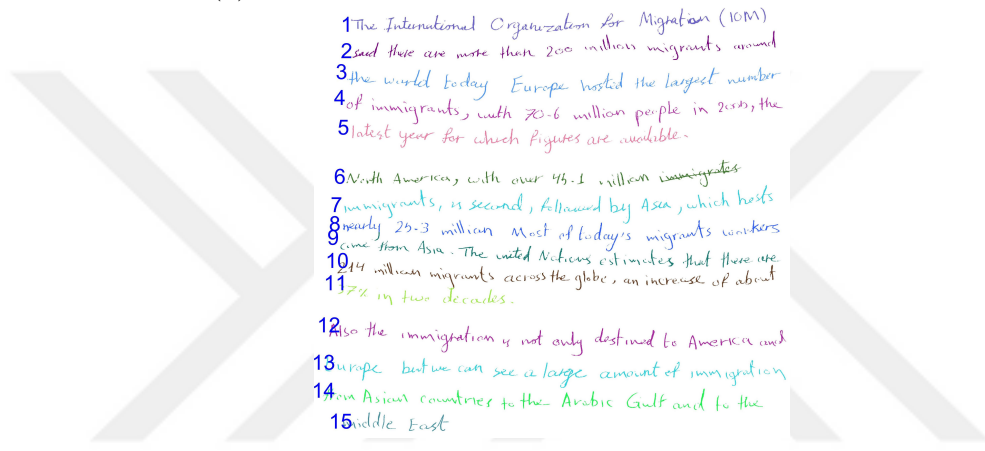 1 The International Organization for Migration (IOM)
2 said there are more than 200 million migrants around
3 the world today Europe hosted the largest number
4 of immigrants, with 70.6 million people in 2005, the
5 latest year for which figures are available.
6 North America, with over 45.1 million immigrates
7 immigrants, is second, followed by Asia, which hosts
8 nearly 25.3 million Most of today's migrants workers
9 come from Asia. The united Nations estimates that there are
10 214 million migrants across the globe, an increase of about
11 37% in two decades.
12 Also the immigration is not only destined to America and
13 Europe but we can see a large amount of immigration
14 from Asian countries to the Arabic Gulf and to the
15 middle East